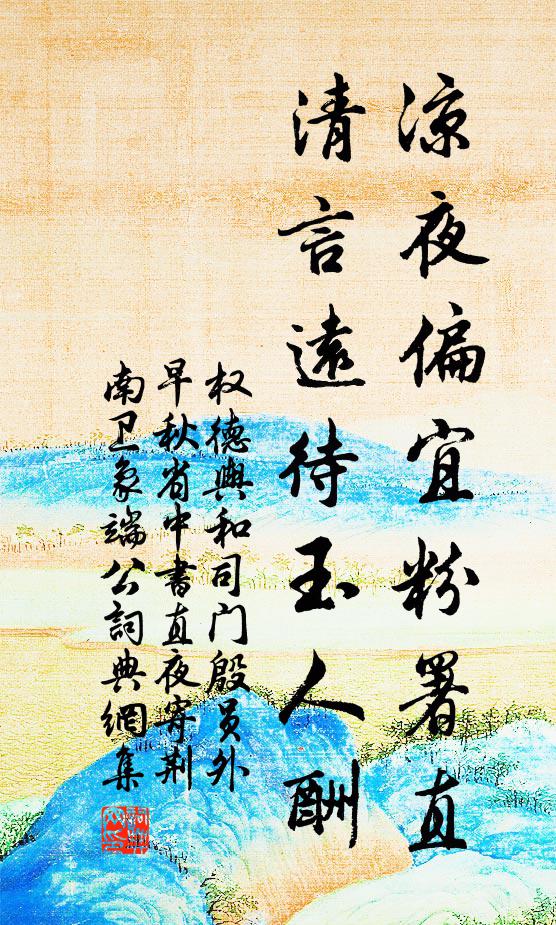 凉夜偏宜粉署直
清言遠待玉人酬
权德輿和司门殷员外
早秋省中書直夜寄荆
南卫象端公詞典網集